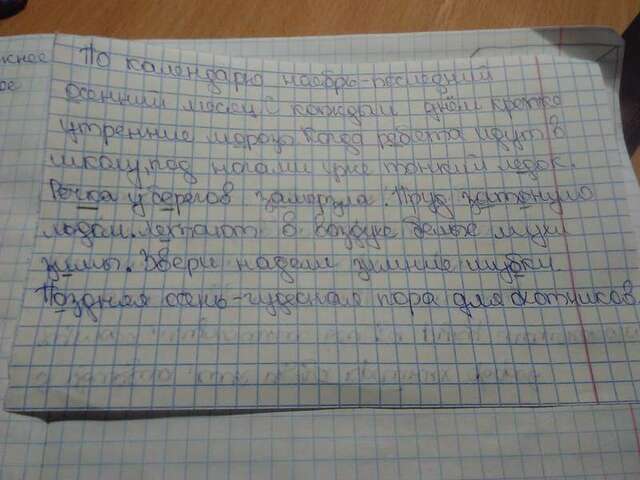 жное
ое
По календарю ноябрь-последний
осенний месяц С каждым днём крепче
утренние морозы Когда ребята идут в
школу, под ногами уже тонкий ледок.
Речка у берегов замёрзла. Пруд затянуло
льдом. Летают в воздухе белые мухи
зимы. Звери надели зимние шубки.
Поздняя осень-чудесная пора для охотников